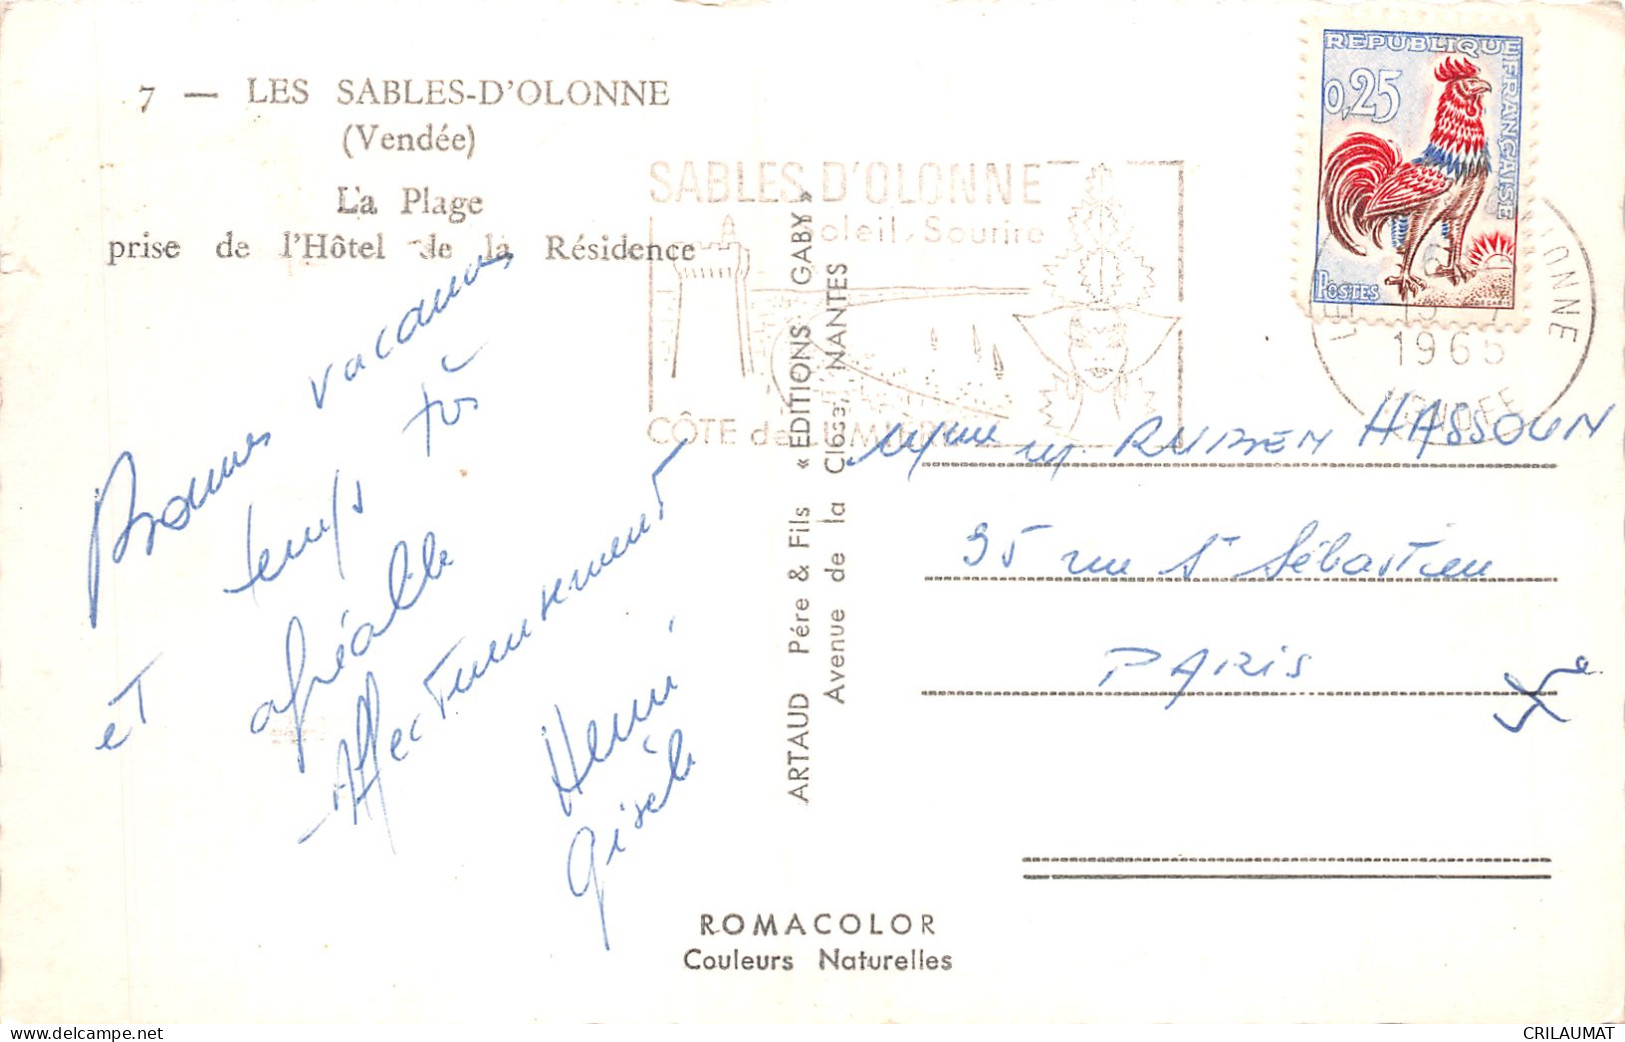 7 — LES SABLES-D'OLONNE
(Vendée)
La Plage
prise de l'Hôtel de la Résidence
SABLES D'OLONNE
Soleil, Sourire
CÔTE de LUMIÈRE
REPUBLIQUE FRANÇAISE
0,25
POSTES
1965
VENDEE
Bonnes vacances
et temps très
agréable
Affectueusement
Henri
Gisèle
ARTAUD Pére & Fils « EDITIONS GABY »
Avenue de la Close, NANTES
Mme M. RUBEN HASSOUN
95 rue St Sébastien
PARIS
ROMACOLOR
Couleurs Naturelles
www.delcampe.net
CRILAUMAT